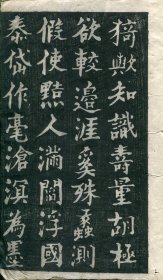 猗歟知識壽量胡極
欲較邊涯奚殊蠡測
假使黠人滿閻浮國
泰岱作毫滄溟為墨